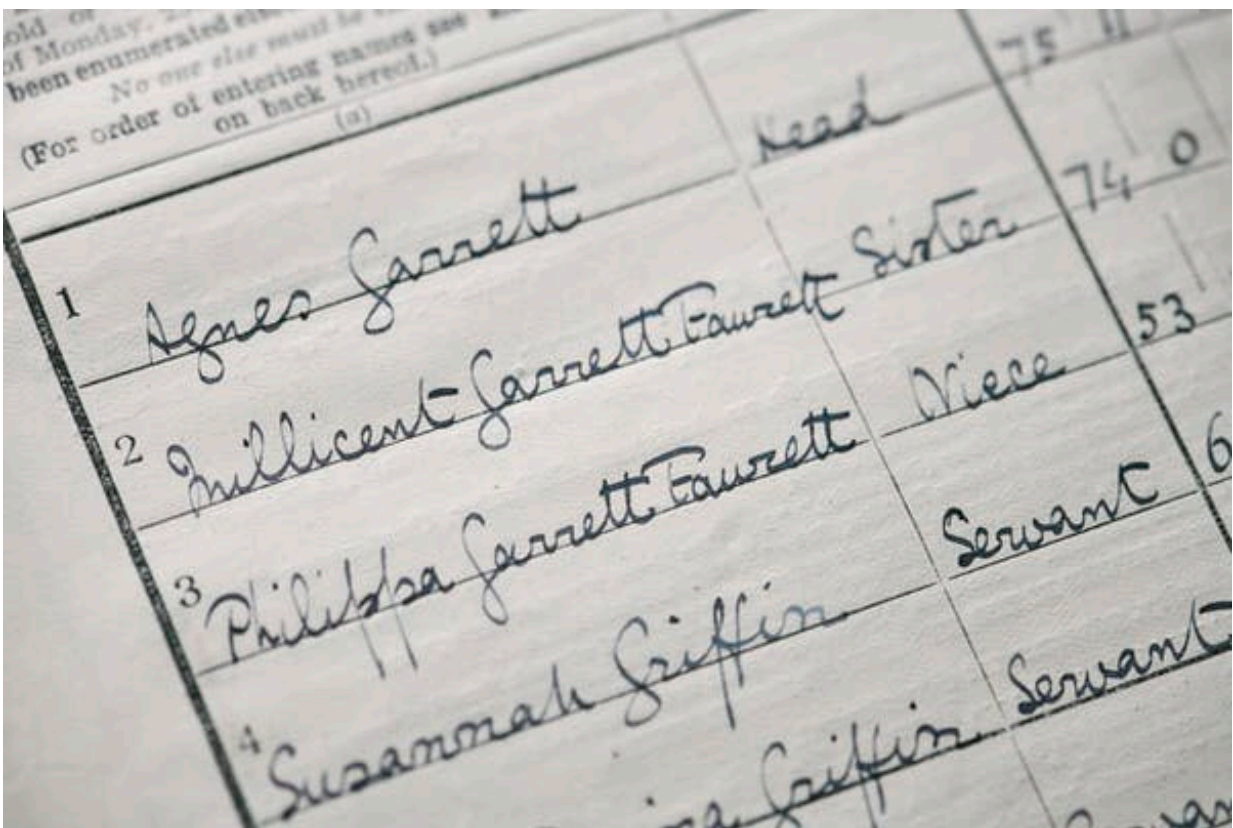 old or
of Monday, 2
been enumerated else
No one else must be
(For order of entering names see
on back hereof.)
(a)
1 Agnes Garrett Head 75 11
2 Millicent Garrett Fawcett Sister 74 0
3 Philippa Garrett Fawcett Niece 53
4 Susannah Griffin Servant 6
Griffin Servant